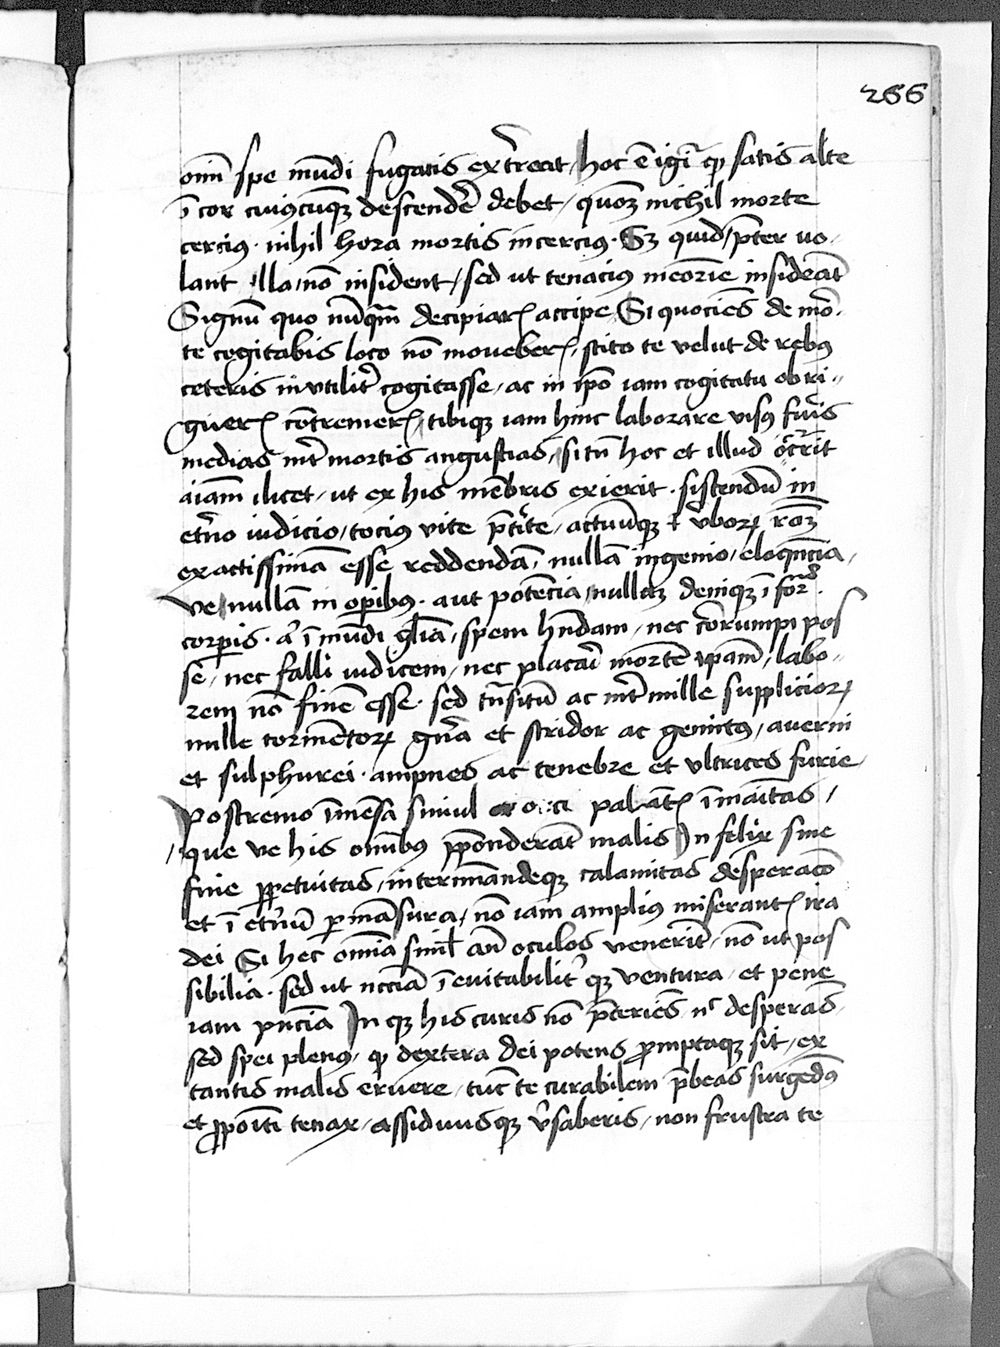 266
om̄i spe mūdi fugatis extrēat / hoc ē igit̄ qͥ satis alte
ī cor cuiuscūqꝫ descendē̄ debet / quom̄ nichil morte
cercius · nihil hora mortis incercius · Sꝫ quid / p̄ter uo-
lant illa / nō insident / sed ut tenacius meōrie insideāt
Signū quo nūqm̄ decipiaꝝ accipe / Si quociēs de mō-
te cogitabis loco nō moveberꝭ / scito te velut de rebꝰ
ceteris inutilit̄ cogitasse / ac in ip̄o iam cogitatu obri-
guerꝭ cōtremerꝭ / tibiqꝫ iam hinc laborare visꝰ fūis
medias int̄ mortis angustias / si tn̄ hoc et illud occ̄rit
aīam ilicet / ut ex his mēbris exierit · sistendū in
et̄no iudicio / tocius vite p̄t̄ite / actuūqꝫ ⁊ v̄boꝝ rōꝫ
exactissimā esse reddendā / nullā ingenio / eloqn̄cia /
ve / nullā in oꝑibus · aut potēcia / nullaꝫ deniqꝫ ī for̄
corꝑis · aͥ ī mūdi gl̄ia / spem hn̄dam / nec c̄orrumpi pos
se / nec falli iudicem / nec placaī mortē ip̄am / labo-
rem nō finē esse · sed tn̄situ ac int̄ mille supplicioꝝ
mille tormētoꝝ gn̄a et stridor ac gemitꝰ / averni
et sulphurei · ampnes ac tenebre et ultrices furie
Postremo īmēsa simul palāt īmāitas /
/ que ve his om̄ibus p̄pōnderāt malis In felix sine
fine ꝑpetuitas / intermīandeqꝫ calamitas desperacō
et ī et̄nū ꝑmāsura / nō iam amplius miserantꝭ ira
dei Si hec om̄ia simul an̄ oculos venerīt / nō ut pos
sibilia · sed ut nccīa ī evitabilit̄ qꝫ ventura / et pene
iam pn̄cia In qꝫ his curis nō p̄teriēs nͨ desperās
sed spei plenꝰ / qͥ dextera dei potens promptaqꝫ sit / ex
tantis malis eruere / tūc te curabilem p̄beas surgēdꝰ
et ꝓpoīti tenax / assiduusqꝫ v̄saberis / non frustra te